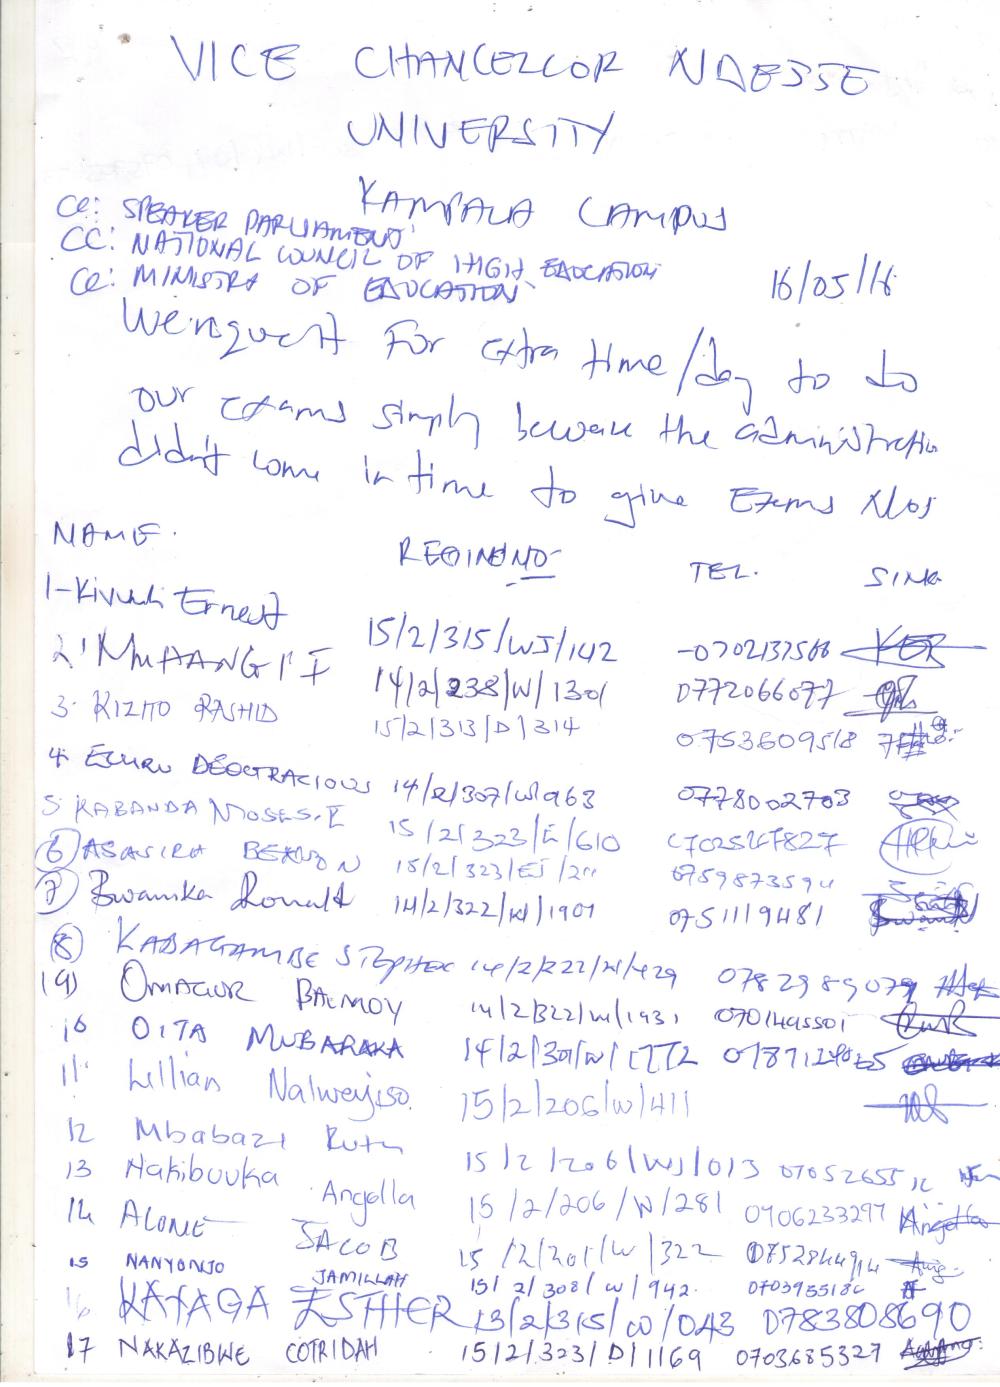 VICE CHANCELLOR NDEJJE
UNIVERSITY
KAMPALA CAMPUS
CC: SPEAKER PARLIAMENT
CC: NATIONAL COUNCIL OF HIGH EDUCATION
CC: MINISTRY OF EDUCATION
16/05/16
We request For extra time/day to do
our exams simply because the administration
didn't come in time to give Exams Nos
NAME. REGINO NO TEL. SIGN
1- Ernest 15/2/315/WJ/142 -0702137568 KER
2. MUHANGI I 14/2/238/W/1301 0772066077
3. KIZITO RASHID 15/2/313/D/314 0753609518
4. DEOGRACIOUS 14/2/307/W/963 0778002703
5. KABANDA MOSES.E 15/2/323/E/610
6 ASASIRA 15/2/323/EJ/211
7 Bwanika Ronald 14/2/322/W/1901 0751119481
8 KABAGAMBE STEPHEN 14/2/222/W/429 0782989079
(9) OMAGOR 14/2/322/W/1931
10 OITA MUBARAKA
11 Lillian Nalweyiso 15/2/206/W/411
12 Mbabazi Ruth 15/2/206/WJ/013
13 Nakibuuka Angella 15/2/206/W/281 0706233297 Angella
14 ALONE JACOB 15/2/201/W/322
15 NANYONJO JAMILLAH 15/2/308/W/942
16 KATAGA ESTHER 13/2/315/W/043 0783808690
17 NAKAZIBWE COTRIDAH 15/2/323/D/1169 0703685327